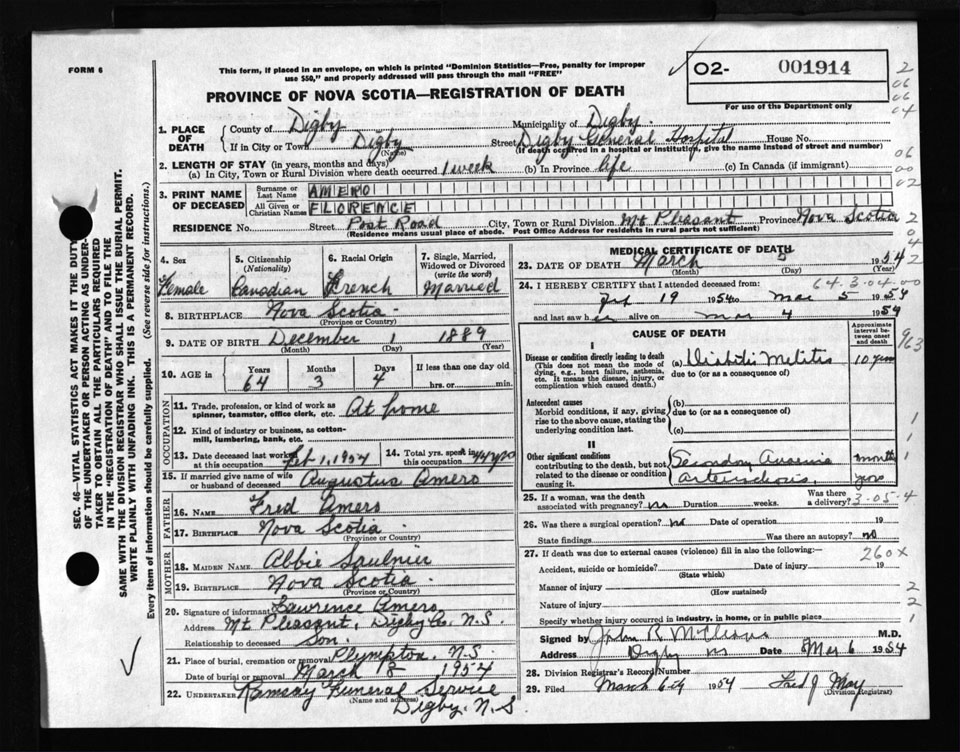 FORM 6
This form, if placed in an envelope, on which is printed "Dominion Statistics—Free, penalty for improper
use $50," and properly addressed will pass through the mail "FREE"
PROVINCE OF NOVA SCOTIA—REGISTRATION OF DEATH
O2- 001914
For use of the Department only
2
06
06
04
06
00
02
2
0
4
2
SEC. 46—VITAL STATISTICS ACT MAKES IT THE DUTY
OF THE UNDERTAKER OR PERSON ACTING AS UNDER-
TAKER TO OBTAIN ALL THE PARTICULARS REQUIRED
IN THE "REGISTRATION OF DEATH" AND TO FILE THE
SAME WITH THE DIVISION REGISTRAR WHO SHALL ISSUE THE BURIAL PERMIT.
WRITE PLAINLY WITH UNFADING INK. THIS IS A PERMANENT RECORD.
Every item of information should be carefully supplied. (See reverse side for instructions.)
1. PLACE OF DEATH
County of Digby Municipality of Digby
If in City or Town Digby Street Digby General Hospital House No.
(Name) (If death occurred in a hospital or institution, give the name instead of street and number)
2. LENGTH OF STAY (in years, months and days)
(a) In City, Town or Rural Division where death occurred 1 week (b) In Province life (c) In Canada (if immigrant)
3. PRINT NAME OF DECEASED
Surname or Last Name AMERO
All Given or Christian Names FLORENCE
RESIDENCE No. Street Post Road City, Town or Rural Division Mt Pleasant Province Nova Scotia
(Residence means usual place of abode. Post Office Address for residents in rural parts not sufficient)
4. Sex Female
5. Citizenship (Nationality) Canadian
6. Racial Origin French
7. Single, Married, Widowed or Divorced (write the word) Married
8. BIRTHPLACE Nova Scotia
(Province or Country)
9. DATE OF BIRTH December 1 1889
(Month) (Day) (Year)
10. AGE in
Years 64 Months 3 Days 4
If less than one day old
hrs. or min.
OCCUPATION
11. Trade, profession, or kind of work as spinner, teamster, office clerk, etc. At home
12. Kind of industry or business, as cotton-mill, lumbering, bank, etc.
13. Date deceased last worked at this occupation Feb 1, 1954
14. Total yrs. spent in this occupation 44 yrs
15. If married give name of wife or husband of deceased Augustus Amero
FATHER
16. NAME Fred Amero
17. BIRTHPLACE Nova Scotia
(Province or Country)
MOTHER
18. MAIDEN NAME Abbie Saulnier
19. BIRTHPLACE Nova Scotia
(Province or Country)
20. Signature of informant Lawrence Amero
Address Mt Pleasant, Digby Co. N.S.
Relationship to deceased Son
21. Place of burial, cremation or removal Plympton, N.S.
Date of burial or removal March 8 1954
22. UNDERTAKER Ramsay Funeral Service
(Name and address)
Digby, N.S.
MEDICAL CERTIFICATE OF DEATH
23. DATE OF DEATH March 5 1954
(Month) (Day) (Year)
64.3.04.00
24. I HEREBY CERTIFY that I attended deceased from:
19 1954 to Mar 5 1954
and last saw her alive on Mar 4 1954
CAUSE OF DEATH
Approximate interval between onset and death
963
I
Disease or condition directly leading to death
(This does not mean the mode of dying, e.g., heart failure, asthenia, etc. It means the disease, injury, or complication which caused death.)
(a) Diabetis Militis 10 years
due to (or as a consequence of)
Antecedent causes
Morbid conditions, if any, giving rise to the above cause, stating the underlying condition last.
(b)
due to (or as a consequence of)
(c)
II
Other significant conditions contributing to the death, but not related to the disease or condition causing it.
Secondary Anaemia months
1
1
1
25. If a woman, was the death associated with pregnancy? no Duration weeks. Was there a delivery? 3-05-4
26. Was there a surgical operation? no Date of operation 19
State findings Was there an autopsy? no
27. If death was due to external causes (violence) fill in also the following:— 260X
Accident, suicide or homicide? Date of injury 19
(State which)
Manner of injury 2
(How sustained)
Nature of injury 2
Specify whether injury occurred in industry, in home, or in public place 1
Signed by John R M.D.
Address Digby NS Date Mar 6 1954
28. Division Registrar's Record Number
29. Filed March 6th 1954 Fred J May
(Division Registrar)